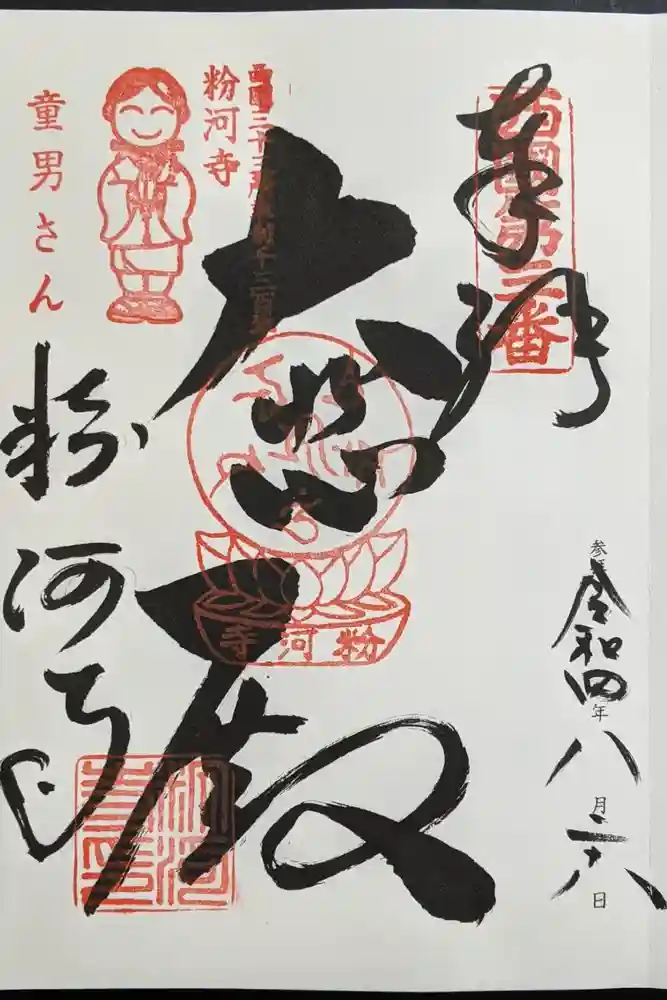 奉拝
西国第三番
参
令和四年八月
日
大悲殿
西国三十三所草創千三百年
粉河寺
粉河寺
童男さん
粉河寺